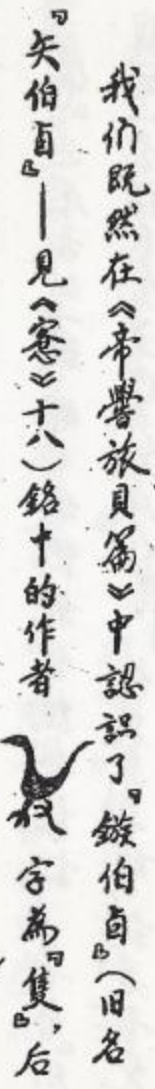 我们既然在《帝嚳旅貝篇》中認识了『鏃伯卣』（旧名
『矢伯卣』—見《窓》十八）銘中的作者 字為『隻』，后